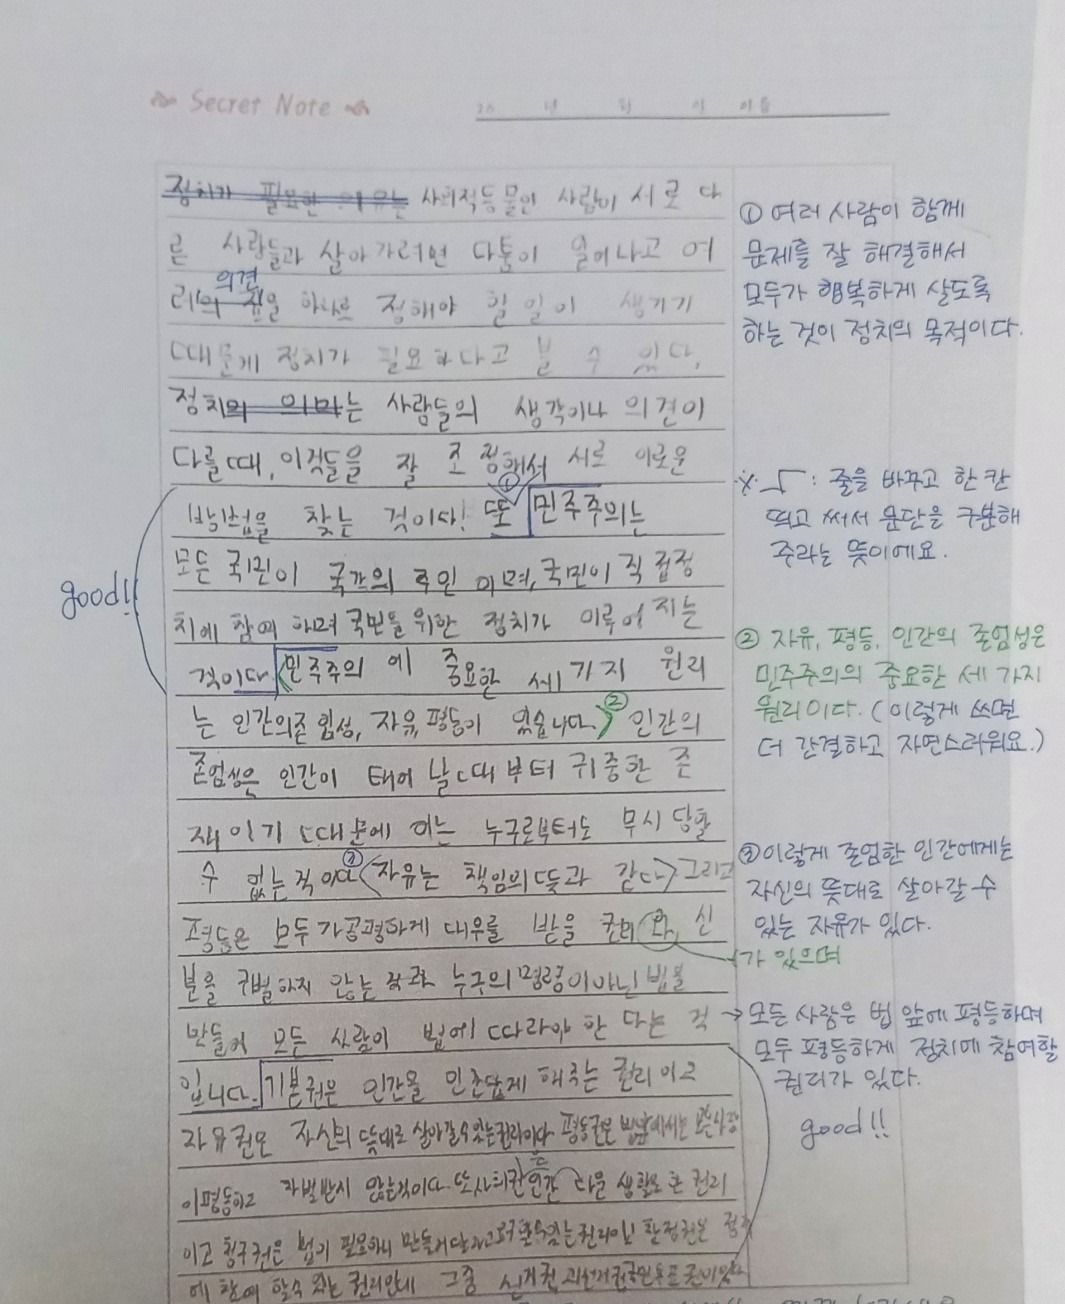 Secret Note
20 년 월 일 이름
정치가 필요한 이유는 사회적동물인 사람이 서로 다
른 사람들과 살아가려면 다툼이 일어나고 여
의견
러의 을 하나로 정해야 할 일이 생기기
때문에 정치가 필요하다고 볼 수 있다.
정치의 의미는 사람들의 생각이나 의견이
다를때, 이것들을 잘 조정해서 서로 이로운
①
방법을 찾는 것이다. 또 민주주의는
모든 국민이 국가의 주인 이며, 국민이 직접정
치에 참여 하며 국민을 위한 정치가 이루어 지는
것이다 민주주의 에 중요한 세 가지 원리
는 인간의존엄성, 자유, 평등이 있습니다. ② 인간의
존엄성은 인간이 태어 날때 부터 귀중한 존
재 이기 때문에 이는 누구로부터도 무시 당할
수 없는 것 이다 ③ 자유는 책임의 뜻과 같다 그리고
평등은 모두가공평하게 대우를 받을 권리 와, 신
분을 구별하지 않는 누구의 명령이아닌 법을
만들어 모든 사람이 법에 따라야 한 다는 것
입니다. 기본권은 인간을 인간답게 해주는 권리 이고
자유권은 자신의 뜻대로 살아갈수있는권리이다 평등권은 법앞에서는 모든사람
이평등하고 차별받지 않는것이다 또사회권은 인간 다운 생활로 한 권리
이고 청구권은 법이 필요하니 만들어달라고 있는권리이고 참정권은 정치
에 참여 할수 있는 권리인데 그중 선거권 피선거권국민투표권이있다
good!!
① 여러 사람이 함께
문제를 잘 해결해서
모두가 행복하게 살도록
하는 것이 정치의 목적이다.
※ : 줄을 바꾸고 한 칸
띄고 써서 문단을 구분해
주라는 뜻이에요.
② 자유, 평등, 인간의 존엄성은
민주주의의 중요한 세 가지
원리이다. (이렇게 쓰면
더 간결하고 자연스러워요.)
③ 이렇게 존엄한 인간에게는
자신의 뜻대로 살아갈 수
있는 자유가 있다.
가 있으며
→ 모든 사람은 법 앞에 평등하며
모두 평등하게 정치에 참여할
권리가 있다.
good!!